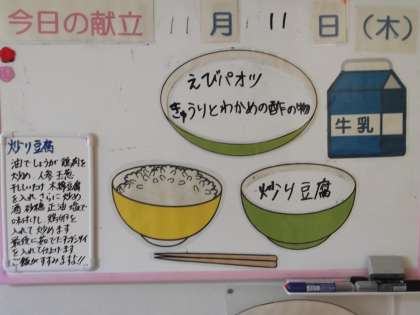 今日の献立 11月11日(木)
えびパオツ
きゅうりとわかめの酢の物
牛乳
炒り豆腐
炒り豆腐
油でしょうが 鶏肉を
炒め 人参 玉葱
干ししいたけ 木綿豆腐
を入れ さらに炒め
酒 砂糖 正油 塩で
味付けし 鶏卵を
入れて炒めます
最後に茹でたチンゲンサイ
を入れて仕上げます
ご飯がすすみますよ!!